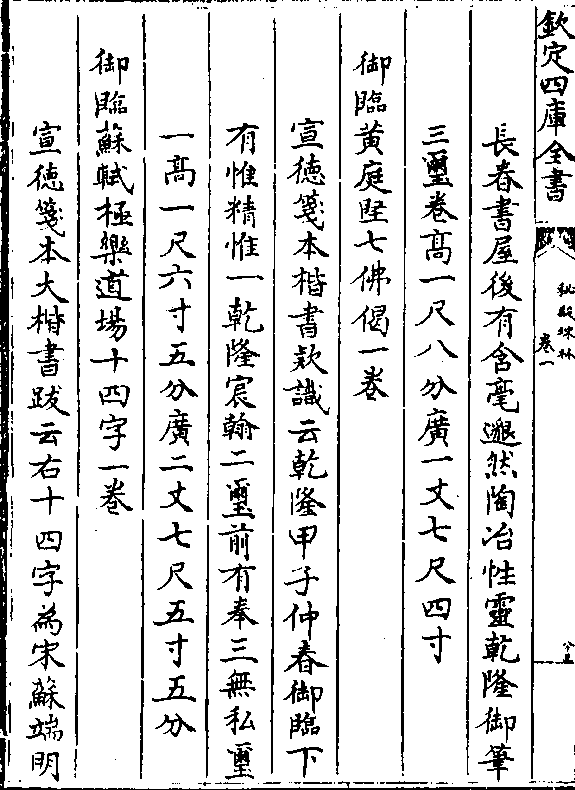 欽定四庫全書
秘殿珠林
卷一
長春書屋後有含毫邈然陶冶性靈乾隆御筆
三璽卷髙一尺八分廣一丈七尺四寸
御臨黃庭堅七佛偈一卷
宣徳箋本楷書欵識云乾隆甲子仲春御臨下
有惟精惟一乾隆宸翰二璽前有奉三無私璽
一髙一尺六寸五分廣二丈七尺五寸五分
御臨蘇軾極樂道場十四字一卷
宣徳箋本大楷書跋云右十四字為宋蘇端明